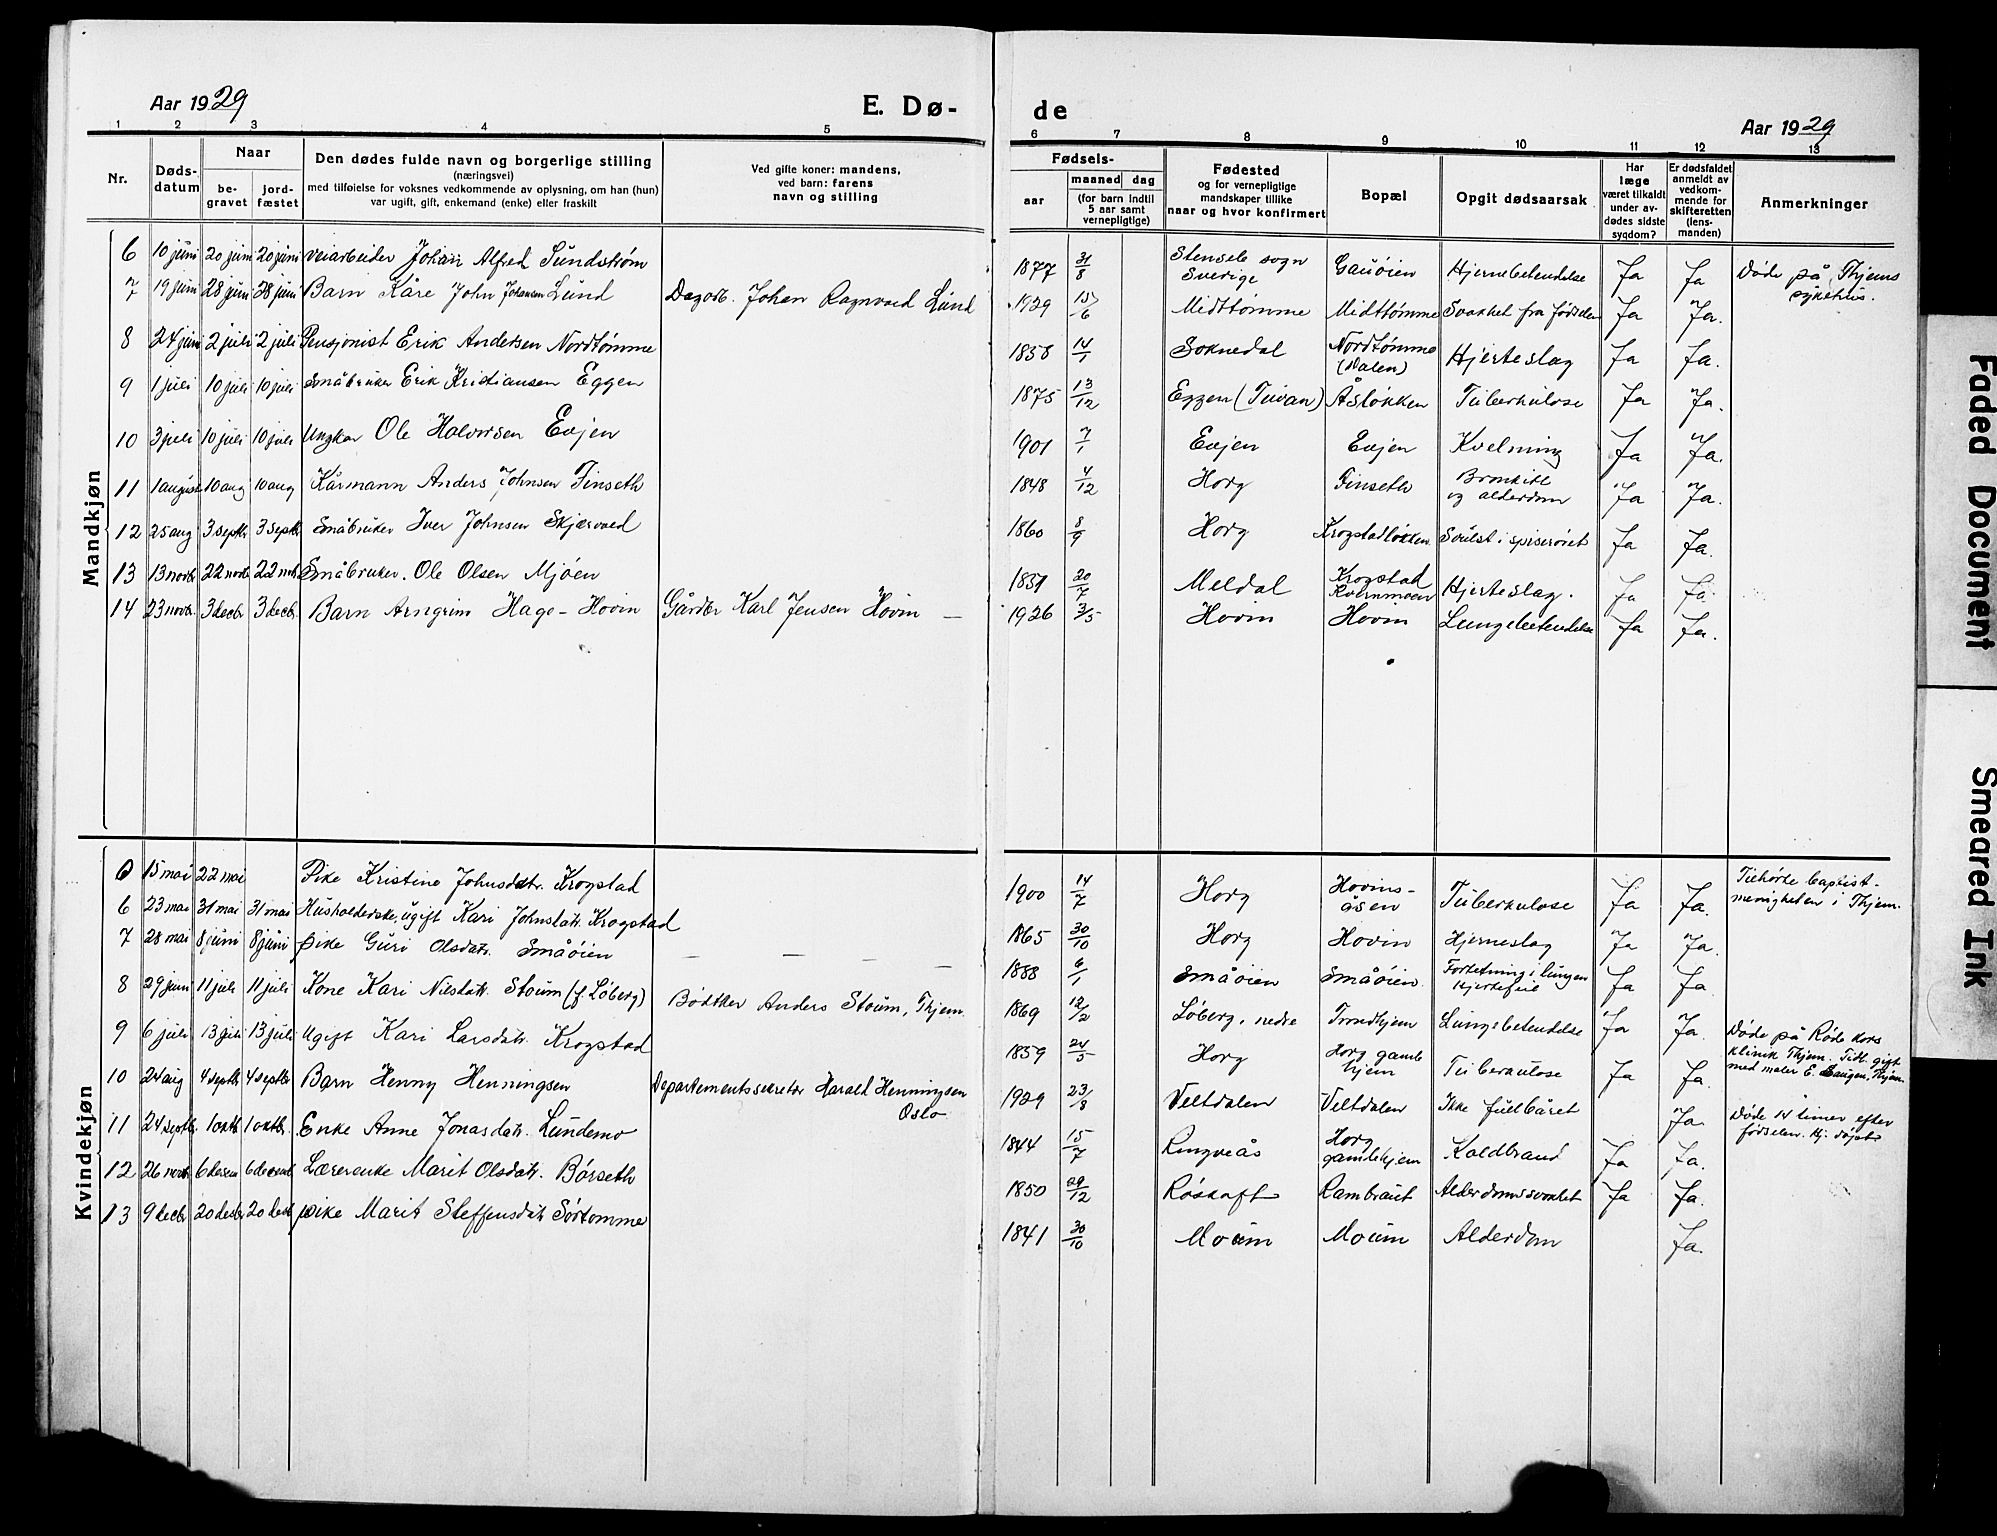 Aar 1929
E. Dø-
de
Aar 1929
1 2 3 4 5 6 7 8 9 10 11 12 13
Nr.
Døds-
datum
Naar
be-
gravet
jord-
fæstet
Den dødes fulde navn og borgerlige stilling
(næringsvei)
med tilføielse for voksnes vedkommende av oplysning, om han (hun)
var ugift, gift, enkemand (enke) eller fraskilt
Ved gifte koner: mandens,
ved barn: farens
navn og stilling
Fødsels-
aar
maaned dag
(for barn indtil
5 aar samt
vernepligtige)
Fødested
og for vernepligtige
mandskaper tillike
naar og hvor konfirmert
Bopæl
Opgit dødsaarsak
Har
læge
været tilkaldt
under av-
dødes sidste
sygdom?
Er dødsfaldet
anmeldt av
vedkom-
mende for
skifteretten
(lens-
manden)
Anmerkninger
Mandkjøn
6 10 juni 20 juni 20 juni Veiarbeider Johan Alfred Sundstrøm 1877 31/8 Stensele sogn Sverige Gauøien Hjernebetendelse Ja Ja Døde på Thjems sykehus.
7 19 juni 28 juni 28 juni Barn Kåre John Johansen Lund Dagarb. Johan Ragnvald Lund 1929 15/6 Midttømme Midttømme Svakhet fra fødselen Ja Ja.
8 24 juni 2 juli 2 juli Pensjonist Erik Andersen Nordtømme 1858 14/1 Soknedal Nordtømme (Dalen) Hjerteslag Ja Ja.
9 1 juli 10 juli 10 juli Småbruker Erik Kristiansen Eggen 1875 13/12 Eggen (Tuvan) Åsløkken Tuberkulose Ja Ja.
10 3 juli 10 juli 10 juli Ungkar Ole Halvorsen Evjen 1901 7/1 Evjen Evjen Kvelning Ja Ja.
11 1 august 10 aug 10 aug Kårmann Anders Johnsen Finseth 1848 4/12 Horg Finseth Bronkitt og alderdom Ja Ja.
12 25 aug 3 septbr 3 septbr Småbruker Iver Johnsen Skjærvold 1860 8/9 Horg Krogstadløkken Svulst i spiserøret Ja Ja.
13 13 novbr 22 novbr 22 novbr Småbruker. Ole Olsen Mjøen 1851 20/7 Meldal Krogstad Kvernmoen Hjerteslag. Ja Ja.
14 23 novbr. 3 decbr 3 decbr. Barn Arngrim Hage-Hovin Gårdbr Karl Jensen Hovin — 1926 3/5 Hovin Hovin Lungebetendelse Ja Ja.
Kvindekjøn
0 15 mai 22 mai Pike Kristine Johnsdatr. Krogstad 1900 14/7 Horg Hovins-åsen Tuberkulose Ja Ja. Tilhørte baptist-menigheten i Thjem.
6 23 mai 31 mai 31 mai Husholderske, ugift Kari Johnsdatr. Krogstad 1865 30/10 Horg Hovin Hjerneslag Ja Ja.
7 28 mai 8 juni 8 juni Pike Guri Olsdatr. Småøien — — — — 1888 6/1 Småøien Småøien Fortetning i lungen Hjertefeil Ja Ja.
8 29 juni 11 juli 11 juli Kone Kari Nilsdatr. Stoum (f. Løberg) Bødtker Anders Stoum, Thjem. 1869 12/2 Løberg, nedre Trondhjem Lungebetendelse Ja Ja. Døde på Røde kors klinik Thjem. Tidl. gift med maler E. Haugen, Thjem.
9 6 juli 13 juli 13 juli Ugift Kari Larsdatr. Krogstad 1859 24/5 Horg Horg gamlehjem Tuberkulose Ja Ja.
10 24 aug 4 septbr 4 septbr Barn Henny Henningsen Departementssekretær Harald Henningsen Oslo 1929 23/8 Veltdalen Veltdalen Ikke fullbåret Ja. Døde 14 timer efter fødselen. Hj. døpt
11 24 septbr. 1 oktbr 1 oktbr. Enke Anne Jonasdatr. Lundemo 1844 15/7 Ringveås Horg gamlehjem Koldbrand Ja Ja.
12 26 novbr. 6 desem 6 decemb Lærerenke Marit Olsdatr. Børseth 1850 29/12 Røskaft Rambraut Alderdomssvakhet Ja Ja.
13 9 decbr 20 desbr 20 desbr Pike Marit Steffensdatr Sørtømme 1841 30/10 Moum Moum Alderdom Ja.
Faded Document
Smeared Ink